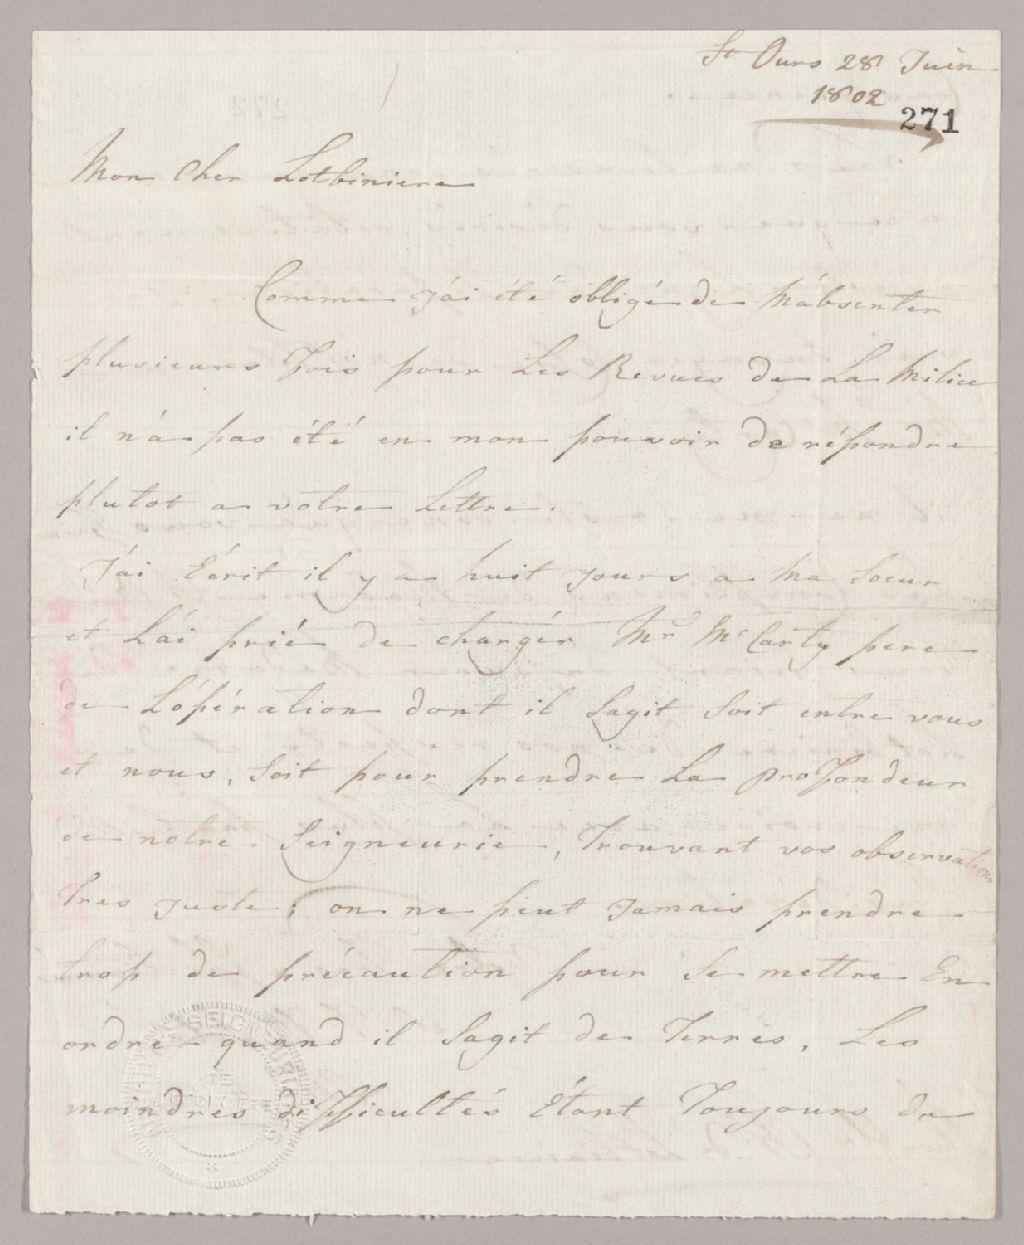 St Ours 28 Juin
1802
271
Mon Cher Lotbiniere
Comme J'ai été obligé de M'absenter
plusieurs Fois pour Les Revues de La Milice
il n'a pas été en mon pouvoir de répondre
plutot a votre Lettre.
J'ai Ecrit il y a huit Jours a Ma Soeur
et L'ai prié de chargér Mr McCarty pere
de L'opération dont il Sagit Soit entre vous
et nous, Soit pour prendre La proFondeur
de nôtre Seigneurie, Trouvant vos observations
Tres Juste; on ne peut Jamais prendre
trop de précaution pour Se mettre En
ordre quand il Sagit de Terres, Les
moindres diFficultés Etant Toujours de